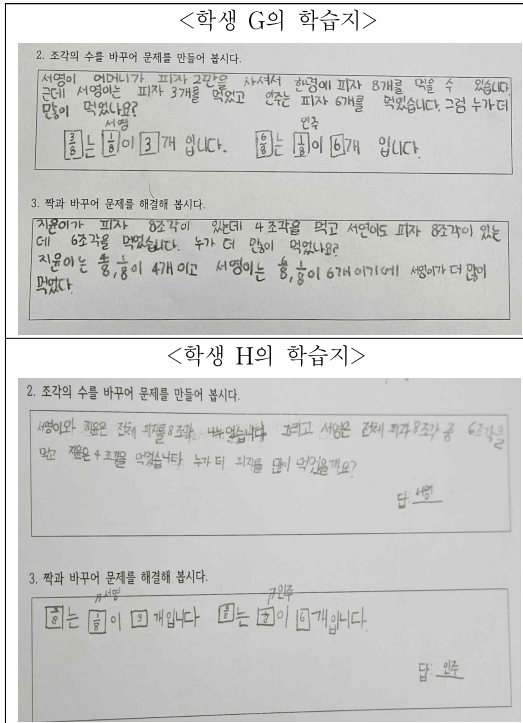 <학생 G의 학습지>
2. 조각의 수를 바꾸어 문제를 만들어 봅시다.
서영이 어머니가 피자 2판을 사셔서 한명에 피자 8개를 먹을 수 있습니다.
근데 서영이는 피자 3개를 먹었고 인주는 피자 6개를 먹었습니다. 그럼 누가 더
많이 먹었나요?
서영 인주
3/8는 1/8이 3개 입니다. 6/8는 1/8이 6개 입니다.
3. 짝과 바꾸어 문제를 해결해 봅시다.
지윤이가 피자 8조각이 있는데 4조각을 먹고 서연이도 피자 8조각이 있는
데 6조각을 먹었습니다. 누가 더 많이 먹었나요?
지윤이는 4/8, 1/8이 4개이고 서영이는 6/8, 1/8이 6개이기에 서영이가 더 많이
먹었다.
<학생 H의 학습지>
2. 조각의 수를 바꾸어 문제를 만들어 봅시다.
서영이와 지윤은 전체 피자를 8조각 나누었습니다. 그리고 서영은 전체 피자 8조각 중 6조각을
먹고 지윤은 4조각을 먹었습니다. 누가 더 피자를 많이 먹었을까요?
답: 서영
3. 짝과 바꾸어 문제를 해결해 봅시다.
서영 인주
3/8는 1/8이 3개입니다 6/8는 1/8이 6개입니다.
답: 인주